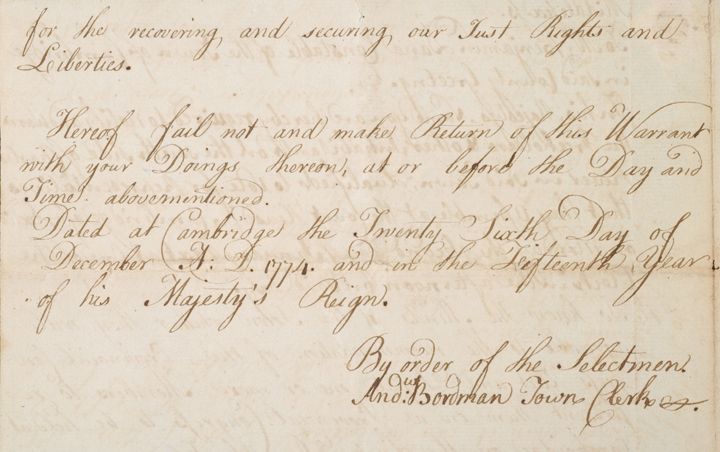 for the recovering and securing our Just Rights and
Liberties.
Hereof fail not and make Return of this Warrant
with your Doings thereon, at or before the Day and
Time abovementioned.
Dated at Cambridge the Twenty Sixth Day of
December A: D. 1774. and in the Fifteenth Year
of his Majesty's Reign.
By order of the Selectmen.
And:w Bordman Town Clerk